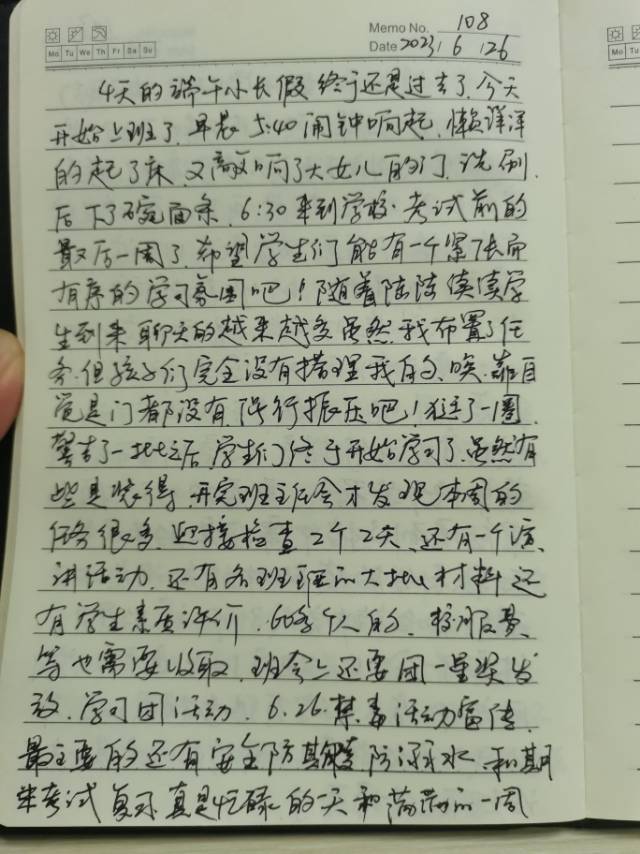 Memo No. 108
Mo Tu We Th Fr Sa Su
Date 2023 / 6 / 26
4天的端午小长假终于还是过去了,今天
开始上班了,早晨5:40闹钟响起,懒洋洋
的起了床,又敲响了大女儿的门,洗刷
后下了碗面条,6:30来到学校.考试前的
最后一周了,希望学生们能有一个紧张而
有序的学习氛围吧!随着陆陆续续学
生到来聊天的越来越多虽然我布置了任
务,但孩子们完全没有搭理我的,唉,靠自
觉是门都没有,强行振压吧!狂逛了一圈,
警告了一批之后,学生们终于开始学习了,虽然有
些是装得,开完班主任会才发现本周的
任务很多,迎接检查2个2天、还有一个演
讲活动,还有各班级的大批材料还
有学生素质评价,60多个人的,校服费,
等也需要收取,班会上还要团一星奖发
放,学习团活动,6.26.禁毒活动宣传,
最主要的还有安全防欺凌,防溺水,和期
末考试复习,真是忙碌的一天和满满的一周
Mo Tu